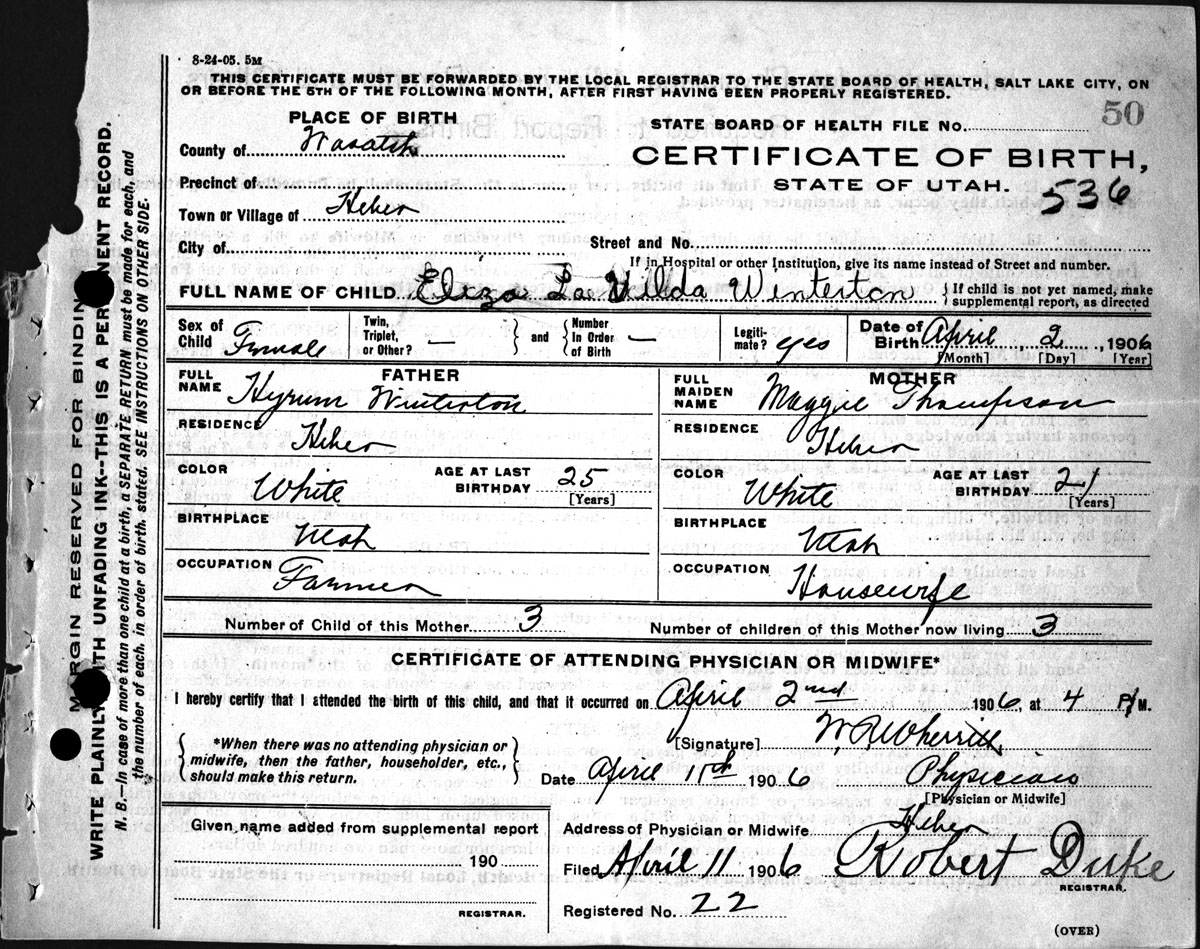 8-24-05. 5M
THIS CERTIFICATE MUST BE FORWARDED BY THE LOCAL REGISTRAR TO THE STATE BOARD OF HEALTH, SALT LAKE CITY, ON
OR BEFORE THE 5TH OF THE FOLLOWING MONTH, AFTER FIRST HAVING BEEN PROPERLY REGISTERED.
50
PLACE OF BIRTH
STATE BOARD OF HEALTH FILE NO.
County of Wasatch
CERTIFICATE OF BIRTH,
Precinct of
STATE OF UTAH.
536
Town or Village of Heber
City of
Street and No.
If in Hospital or other Institution, give its name instead of Street and number.
FULL NAME OF CHILD Eliza La Vilda Winterton { If child is not yet named, make
supplemental report, as directed
Sex of Child Female
Twin, Triplet, or Other? —
} and {
Number In Order of Birth —
Legitimate? yes
Date of Birth April 2, 1906
[Month] [Day] [Year]
FATHER
FULL NAME Hyrum Winterton
RESIDENCE Heber
COLOR White AGE AT LAST BIRTHDAY 25
[Years]
BIRTHPLACE Utah
OCCUPATION Farmer
MOTHER
FULL MAIDEN NAME Maggie Thompson
RESIDENCE Heber
COLOR White AGE AT LAST BIRTHDAY 21
[Years]
BIRTHPLACE Utah
OCCUPATION Housewife
Number of Child of this Mother 3 Number of children of this Mother now living 3
CERTIFICATE OF ATTENDING PHYSICIAN OR MIDWIFE*
I hereby certify that I attended the birth of this child, and that it occurred on April 2nd 1906, at 4 P M.
{ *When there was no attending physician or
midwife, then the father, householder, etc.,
should make this return. }
[Signature] W R Wherritt
Date April 11th 1906 Physician
[Physician or Midwife]
Given name added from supplemental report
190
REGISTRAR.
Address of Physician or Midwife Heber
Filed April 11 1906 Robert Duke
REGISTRAR.
Registered No. 22
(OVER)
MARGIN RESERVED FOR BINDING
WRITE PLAINLY WITH UNFADING INK--THIS IS A PERMANENT RECORD.
N. B.—In case of more than one child at a birth, a SEPARATE RETURN must be made for each, and
the number of each, in order of birth, stated. SEE INSTRUCTIONS ON OTHER SIDE.